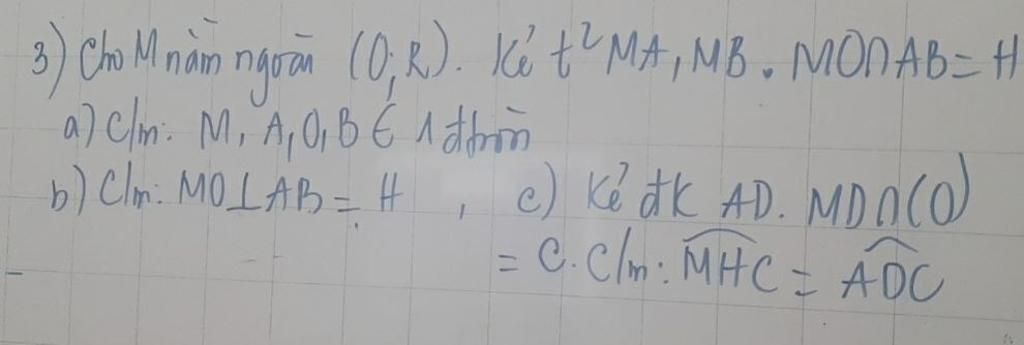 3) Cho M nằm ngoài (O;R). Kẻ t² MA, MB. MO∩AB = H
a) C/m: M, A, O, B ∈ 1 đtròn
b) C/m: MO⊥AB = H , c) Kẻ đk AD. MD∩(O)
= C. C/m: \widehat{MHC} = \widehat{ADC}